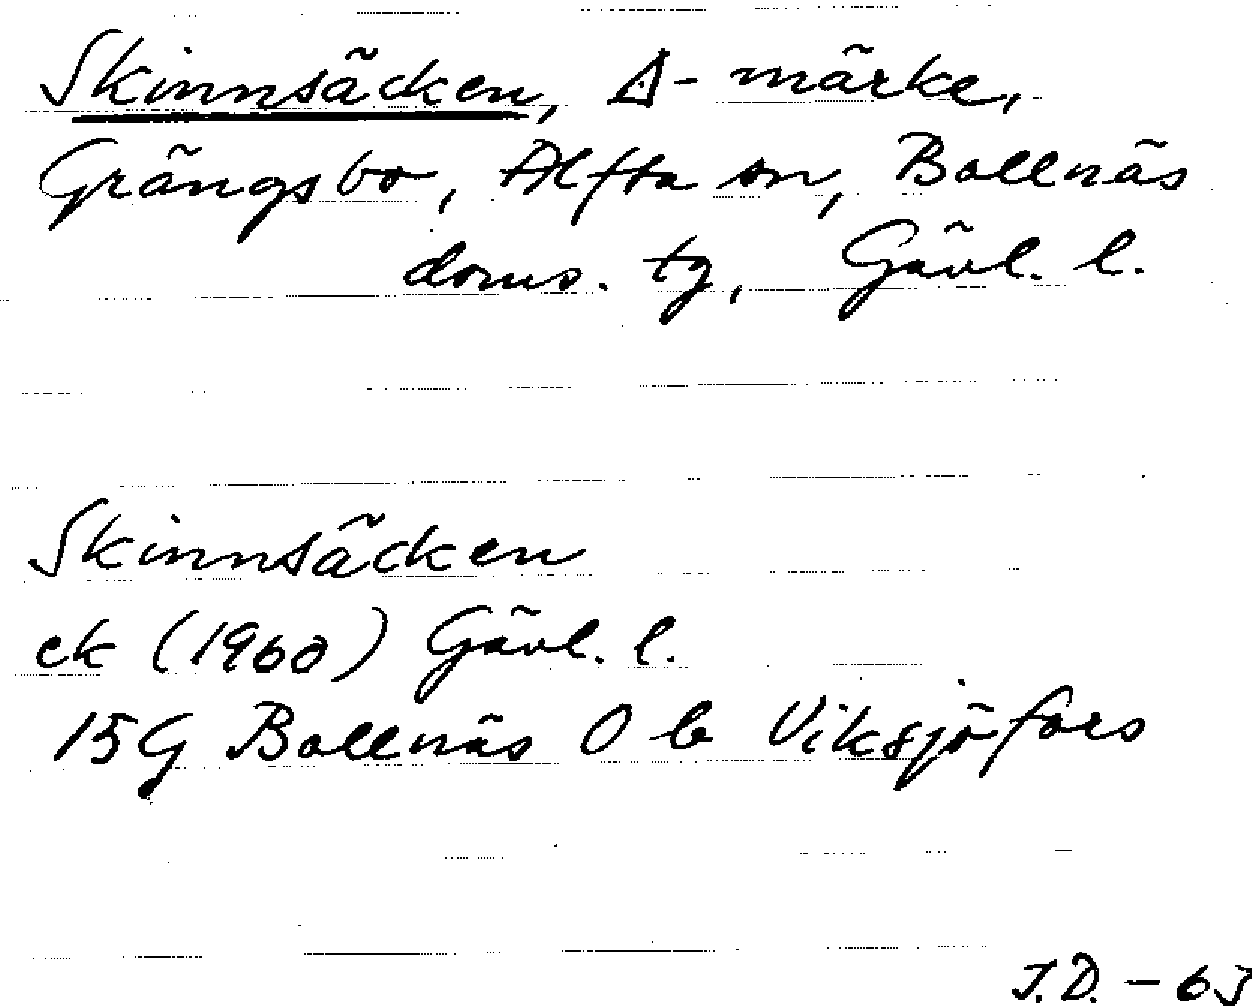 Skinnsäcken, Δ-märke,
Grängsbo, Alfta sn, Bollnäs
doms. tg, Gävl. l.
Skinnsäcken
ek (1960) Gävl. l.
15G Bollnäs O b Viksjöfors
J.D. - 63